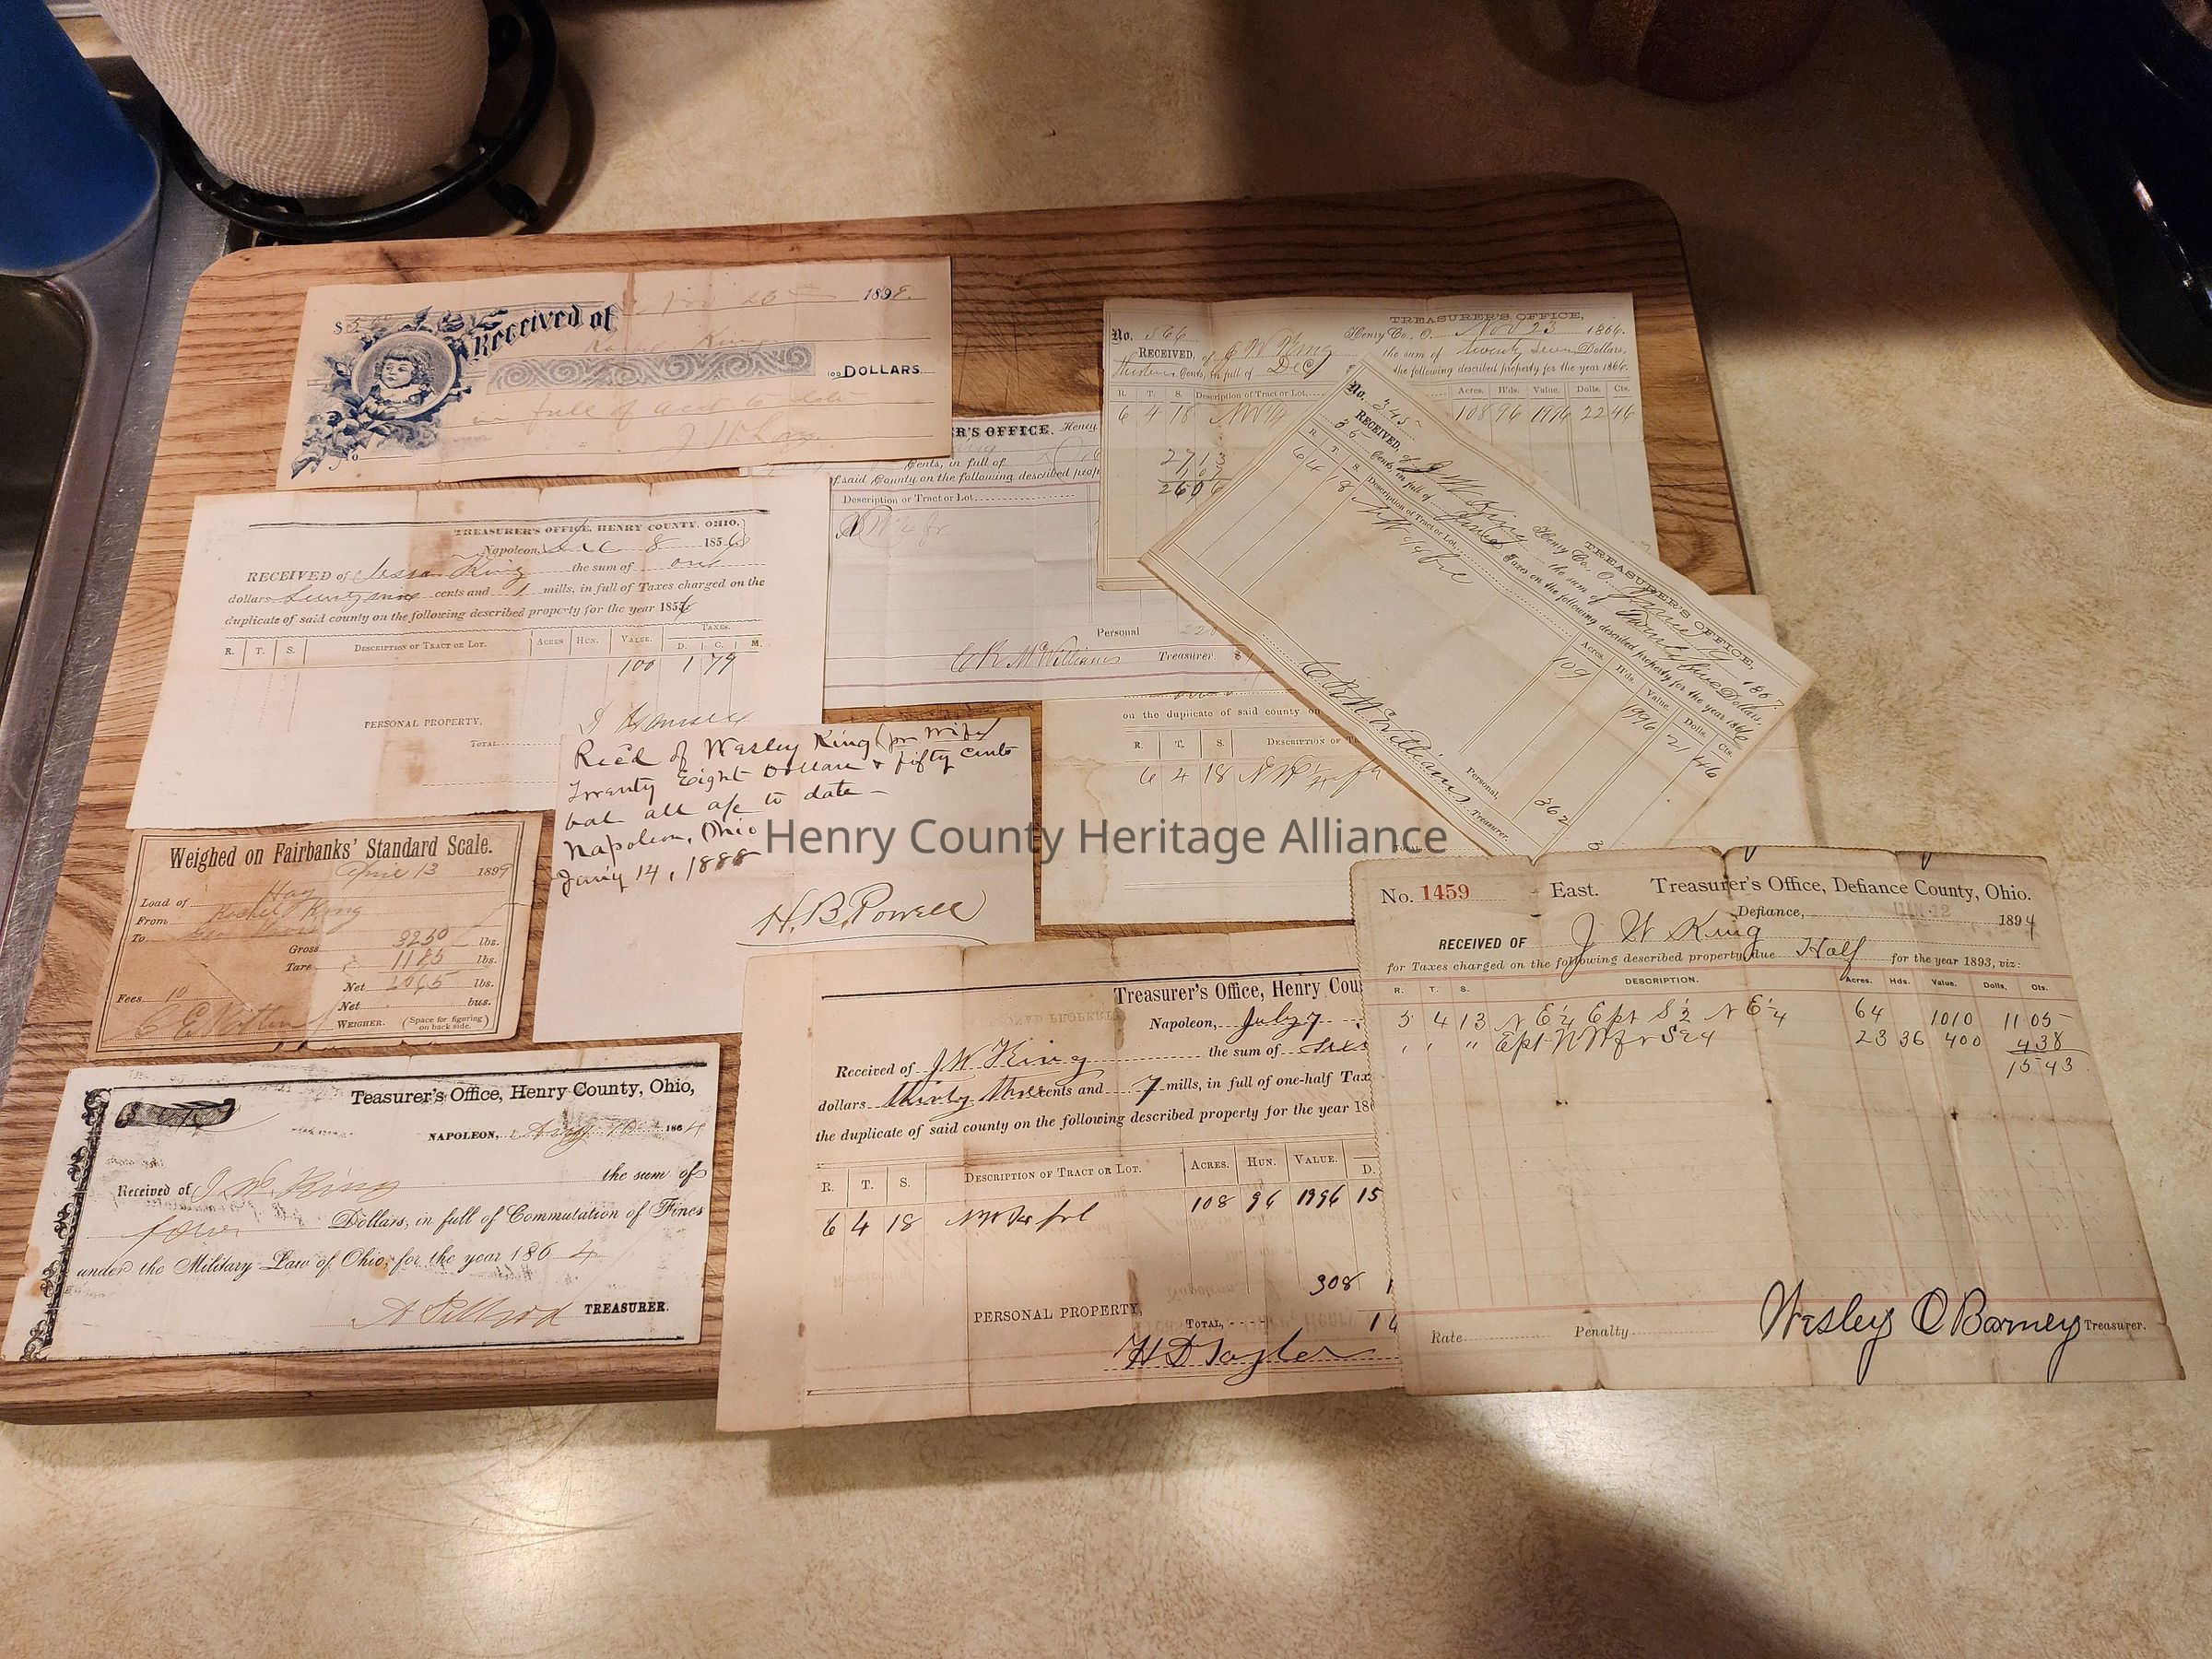 Nov 26 1898.
$
Received of
King
100 DOLLARS
in full of acct to date
No
No. 366
TREASURER'S OFFICE,
Henry Co., O. Nov 23 1866.
RECEIVED, of J W King the sum of twenty seven Dollars,
thirteen Cents, in full of Dec the following described property for the year 1866.
R. T. S. Description of Tract or Lot, Acres. H'ds. Value. Dolls. Cts.
6 4 18 NW 1/4 108 96 1996 22 46
27 13
1 07
26 06
ER'S OFFICE. Henry
Cents, in full of
of said County on the following described prop
Description or Tract or Lot
Personal 220
C R McWilliams Treasurer. $
No. 345
TREASURER'S OFFICE,
Henry Co. O. June 1867.
RECEIVED, of J W King the sum of Twenty five Dollars,
35 Cents, in full of June Taxes on the following described property for the year 1866
R. T. S. Description of Tract or Lot Acres. H'ds. Value. Dolls. Cts.
6 4 18 NW 1/4 frl 109 1996 21 46
Personal, 362
C R McWilliams Treasurer.
TREASURER'S OFFICE, HENRY COUNTY, OHIO,
Napoleon, Dec 8 185
RECEIVED of King the sum of one
dollars seventy nine cents and 1 mills, in full of Taxes charged on the
duplicate of said county on the following described property for the year 185
TAXES.
R. T. S. DESCRIPTION OF TRACT OR LOT. ACRES HUN. VALUE. D. C. M.
100 1 79
PERSONAL PROPERTY,
TOTAL
on the duplicate of said county on
R. T. S. DESCRIPTION OF T
6 4 18 NW 1/4 fr
TOTAL
Rec'd of Wesley King (pr Wife)
Twenty Eight Dollars & fifty cents
bal all a/c to date –
Napoleon, Ohio
Jan'y 14, 1888
H. B. Powell
Henry County Heritage Alliance
Weighed on Fairbanks' Standard Scale.
April 13 1899
Load of Hay
From King
To
Gross 3250 lbs.
Tare 1185 lbs.
Net 2065 lbs.
Fees 10 Net bus.
WEIGHER. (Space for figuring on back side.)
No. 1459 East. Treasurer's Office, Defiance County, Ohio.
Defiance, JAN 12 1894
RECEIVED OF J W King
for Taxes charged on the following described property due Half for the year 1893, viz:
R. T. S. DESCRIPTION. Acres. Hds. Value. Dolls. Cts.
5 4 13 N E 1/4 Ept S 1/2 N E 1/4 64 1010 11 05
" " " Ept N W fr S E 4 23 36 400 4 38
15 43
Rate Penalty Wesley O Barney Treasurer.
Teasurer's Office, Henry County, Ohio,
NAPOLEON, Aug 1864
Received of J. W. King the sum of
four Dollars, in full of Commutation of Fines
under the Military Law of Ohio, for the year 1864
TREASURER.
Treasurer's Office, Henry Cou
Napoleon, July 7
Received of J. W King the sum of six
dollars thirty three cents and 7 mills, in full of one-half Tax
the duplicate of said county on the following described property for the year 186
R. T. S. DESCRIPTION OF TRACT OR LOT. ACRES. HUN. VALUE. D.
6 4 18 NW 1/4 frl 108 96 1996 15
308 1
PERSONAL PROPERTY,
TOTAL, 16
H D Taylor